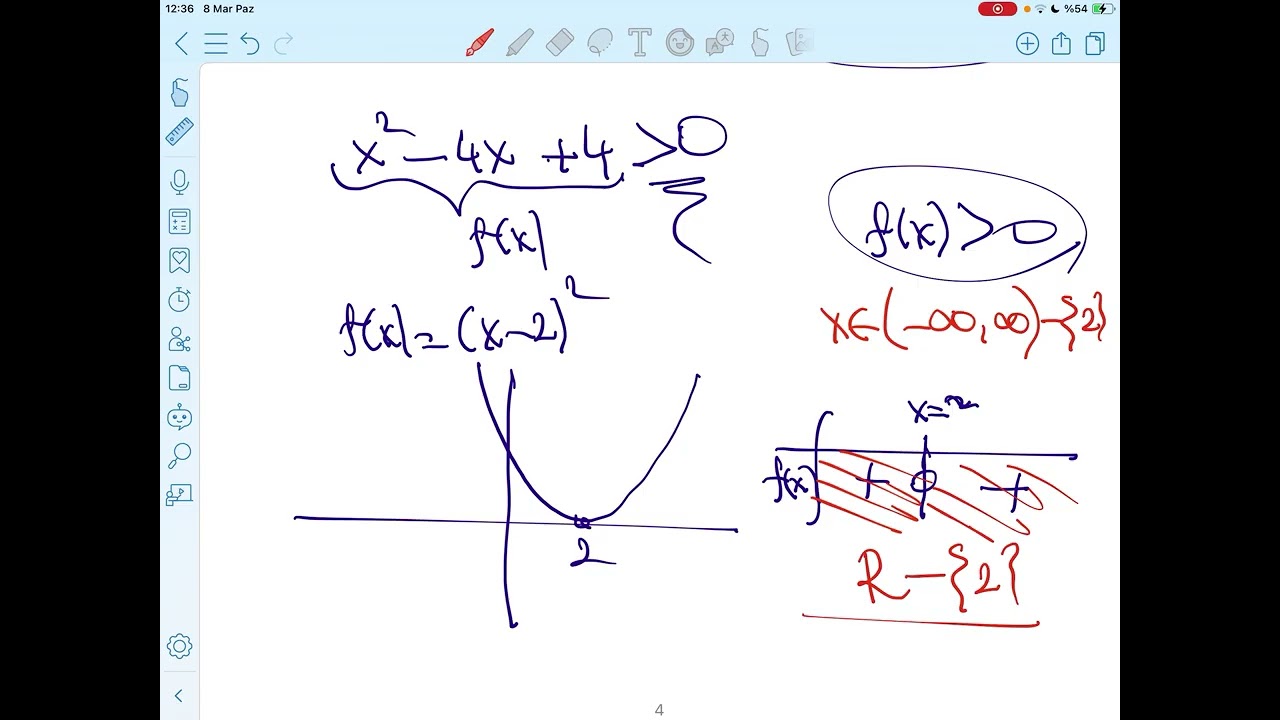 12:36 8 Mar Paz
%54
x² - 4x + 4 > 0
f(x)
f(x) > 0
f(x) = (x-2)²
x ∈ (-∞, ∞) - {2}
x = 2
f(x) + 0 +
2
R - {2}
4